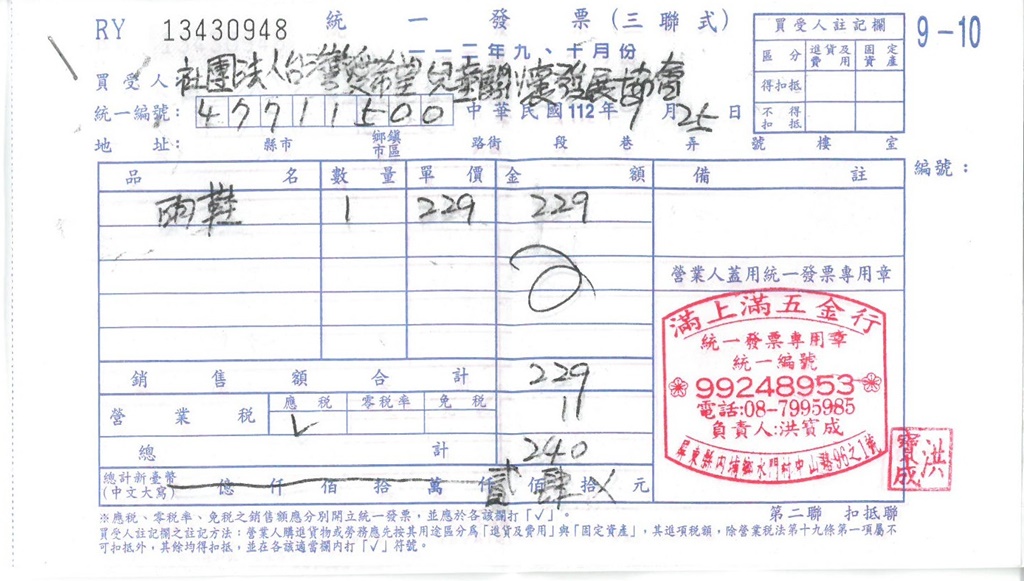 RY 13430948 統一發票(三聯式) 9-10
一一二年九、十月份
買受人 社團法人台灣愛希望兒童關懷發展協會
統一編號: 47711500 中華民國112年9月25日
地址: 縣市 鄉鎮市區 路街 段 巷 弄 號 樓 室
買受人註記欄
區分 進貨及費用 固定資產
得扣抵
不得扣抵
編號:
品名 數量 單價 金額 備註
雨鞋 1 229 229
營業人蓋用統一發票專用章
銷售額合計 229
營業稅 應稅 零稅率 免稅 11
✓
總計 240
總計新臺幣(中文大寫) 億仟佰拾萬仟貳佰肆拾元
滿上滿五金行
統一發票專用章
統一編號
99248953
電話:08-7995985
負責人:洪寶成
屏東縣內埔鄉水門村中山路96之1號
洪寶成
第二聯 扣抵聯
※應稅、零稅率、免稅之銷售額應分別開立統一發票,並應於各該欄打「✓」。
買受人註記欄之註記方法:營業人購進貨物或勞務應先按其用途區分為「進貨及費用」與「固定資產」,其進項稅額,除營業稅法第十九條第一項屬不
可扣抵外,其餘均得扣抵,並在各該適當欄內打「✓」符號。